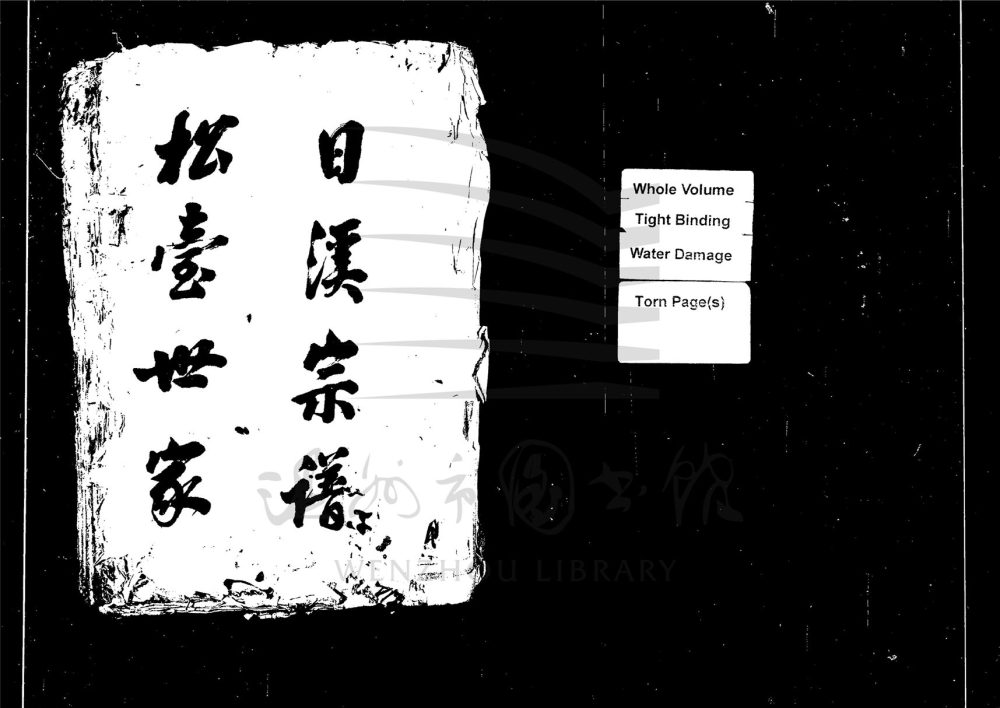 日溪宗譜
松臺世家
Whole Volume
Tight Binding
Water Damage
Torn Page(s)
温州市图书馆
WENZHOU LIBRARY